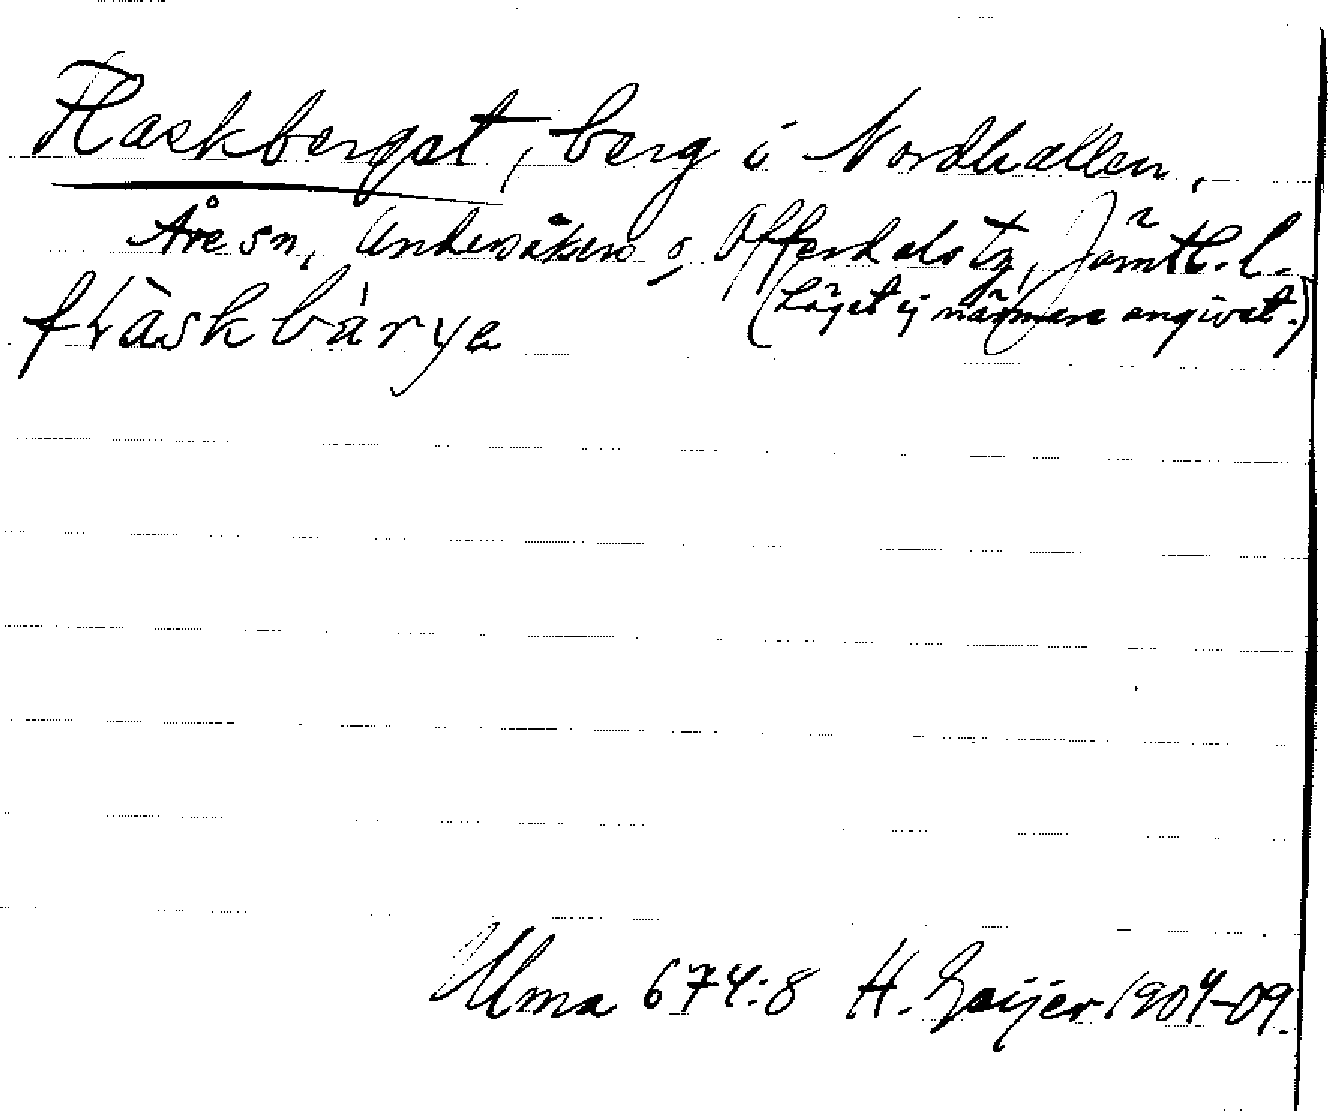 Flaskberget, berg i Nordhallen,
Åre sn, Undersåkers o Offerdals tg, Jämtl. l.
(Läget ej närmare angivet.)
fłàskbá̀rye
Ulma 674:8 H. Geijer 1904-09.